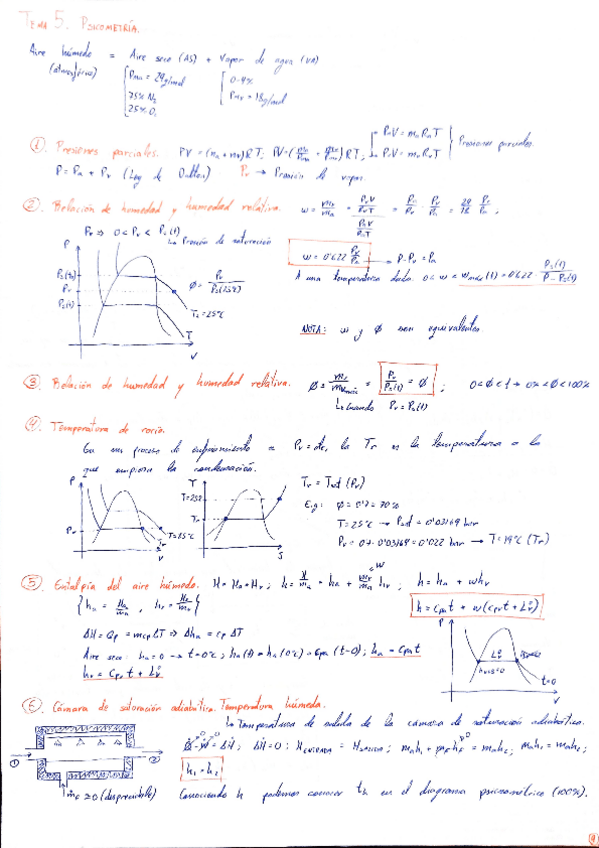 TEMA 5. PSICOMETRÍA.
Aire húmedo = Aire seco (AS) + Vapor de agua (VA)
(atmosférico)
75% N₂
25% O₂
0-4%
① Presiones parciales. PV = (na + nv) R T;
PaV = ma Ra T
Presiones parciales
P = Pa + Pv (Ley de Dalton) Pv → Presión de vapor.
② Relación de humedad y humedad relativa.
Pv ⇒ 0 < Pv < Ps(t)
↳ Presión de saturación
w = 0'622 Pv/Pa → P - Pv = Pa
A una temperatura dada 0 < w < wmáx(t) = 0'622 · Ps(t)/(P - Ps(t))
P
Ps(t)
Pv
Ø = Pv/Ps(25ºC)
T = 25ºC
T
V
NOTA: w y Ø son equivalentes.
③ Relación de humedad y humedad relativa.
Pv/Ps(t) = Ø ; 0 < Ø < 1 → 0% < Ø < 100%
↳ Cuando Pv = Ps(t)
④ Temperatura de rocío.
En un proceso de enfriamiento a Pv = cte, la Tr es la temperatura a la
que empieza la condensación.
P
Pv
T = 25ºC
Tr
V
T
Tr
S
Tr = Tsat (Pv)
E.g: Ø = 0'7 = 70%
T = 25ºC → Psat = 0'03169 bar
Pv = 0'7 · 0'03169 = 0'022 bar → T = 19ºC (Tr)
⑤ Entalpía del aire húmedo. H = Ha + Hv ; h = H/ma = ha + mv/ma hv ; h = ha + whv
{ ha = Ha/ma , hv = Hv/mv }
h = cpa t + w(cpv t + L₀)
ΔH = Qp = mcp ΔT ⇒ Δha = cp ΔT
Aire seco: ha = 0 → t = 0ºC; ha(t) - ha(0ºC) = cpa (t - 0); ha = cpa t
hv = cpv t + L₀
P
L₀
t = 0
V
⑥ Cámara de saturación adiabática. Temperatura húmeda.
↳ Temperatura de salida de la cámara de saturación adiabática.
ΔH = 0 : Hentrada = Hsalida ;
h₁ = h₂
①
②
ṁF ≥ 0 (despreciable) Conociendo h podemos conocer th en el diagrama psicrométrico (100%).